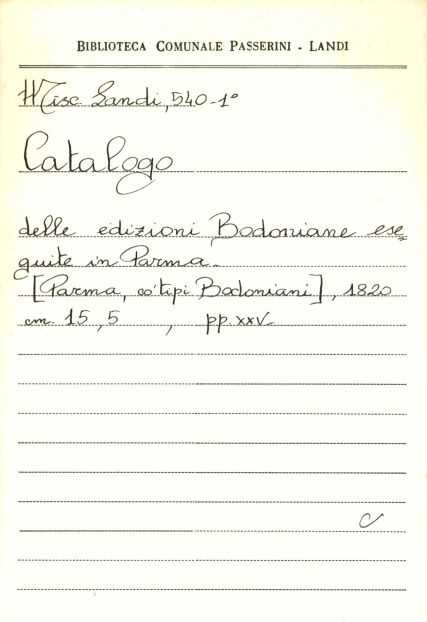 BIBLIOTECA COMUNALE PASSERINI - LANDI
Misc Landi, 540-1°
Catalogo
delle edizioni Bodoniane ese=
guite in Parma.
[Parma, co' tipi Bodoniani], 1820
cm. 15,5 , pp. xxv.
C